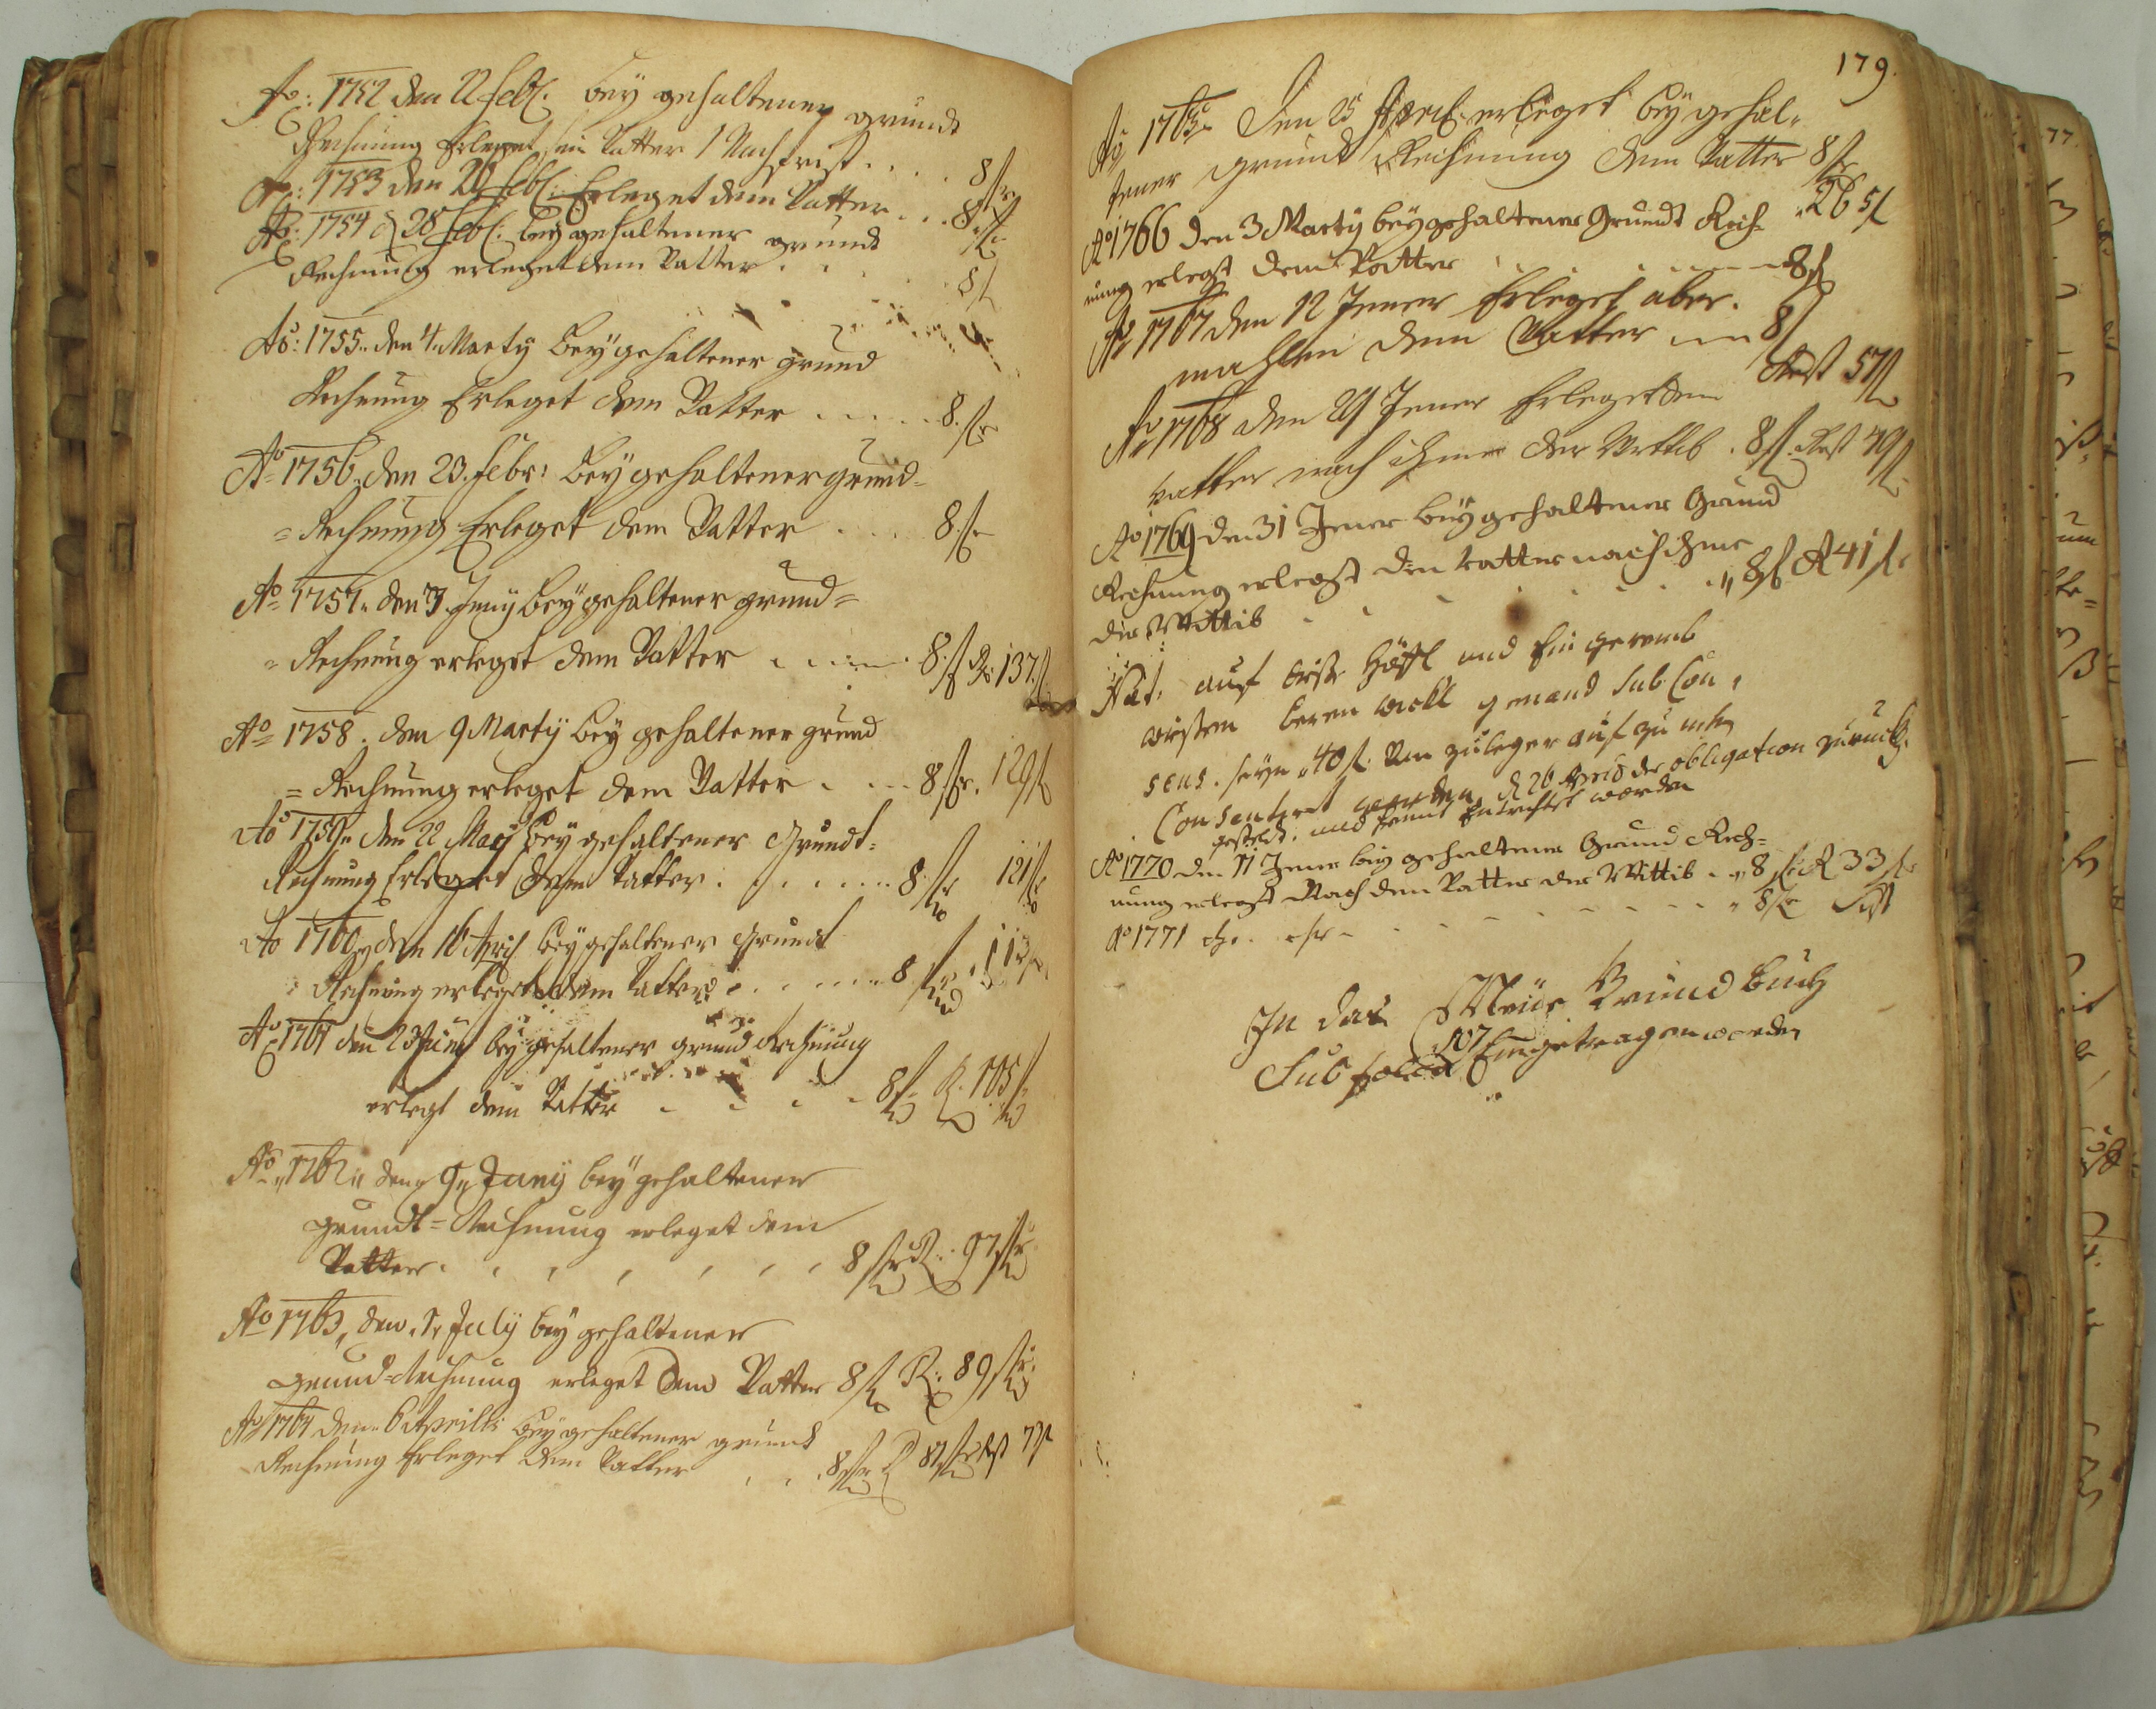 Ao: 1752 den 22 Febr: bey gehaltener grundt
Rechnung Erleget sein Vatter 1 Nachfrist . . . . 8 f
Ao: 1753 den 20 Febr: Erleget dem Vatter . . . 8 f
Ao: 1754 d 28 Febr: bey gehaltener grundt
Rechnung erleget dem Vatter . . . 8 f
Ao: 1755. den 4. Marty bey gehaltener grund
Rechnung Erleget dem Vatter . . . . . 8. f
Ao 1756. den 23. Febr: bey gehaltener grund=
=Rechnung Erleget dem Vatter . . . . 8. f
Ao 1757. den 3. Juny bey gehaltener grund=
=Rechnung erleget dem Vatter . . . . 8. f R: 137. f
Ao= 1758. den 9 Marty bey gehaltener grund
=Rechnung erleget dem Vatter . . . . 8 f r. 129 f
Ao 1759. den 22 May bey gehaltener Grundt=
Rechnung Erleget dem Vatter . . . . . . 8 f 121 f
Ao 1760 den 16 April bey gehaltener Grundt
Rechnung erleget dem Vatter . . . . . . 8 f 113 f
Ao 1761 den 23 Juny bey gehaltener grund Rechnung
erlegt dem Vatter . . . . 8 f R. 105 f
Ao „1762„ den 9„ Juny bey gehaltener
grundt=Rechnung erleget dem
Vatter . . . . . . . 8 f R: 97 f
Ao 1763, den July bey gehaltener
grund=Rechnung erleget dem Vatter 8 f R: 89 f
Ao 1764 den 6 Aprilis bey gehaltener grundt
Rechnung Erleget dem Vatter . . . 8 f R 81 f Rest 73 f
179.
Ao 1765. Den 25 April erleget bey gehal=
tener grundt Rechnung dem Vatter 8 f
R 65 f
Ao 1766 den 3 Marty bey gehaltener Grundt Rech=
nung erlegt dem Vatter . . . . . 8 f
Ao 1767 den 12 Jener Erleget aber=
mahlen dem Vatter 8 f
Rest 57 f
Ao 1768 den 29 Jener Erleget dem
vatter nach ihme der Wittib . 8 f. Rest 49 f
Ao 1769 den 31 Jener bey gehaltener Grund
Rechnung erlegt den vatter nach ihme
die Wittib . . . . . . „ 8 f R 41 f
auf und
sub Con=
sens. 40 f. auf zu
Consentirt worden, d 26 April die obligation zuruckh
gestelt. und Entrichtet worden
Ao 1770 den 11 Jener bey gehaltener Grund Rech=
nung erlegt Nach dem Vatter der Wittib . „ 8 f R 33 f
Ao 1771 . . . . . . . . . „ 8 f
In das Neüe Grund Buch
Sub folio 107 Eingetragen worden